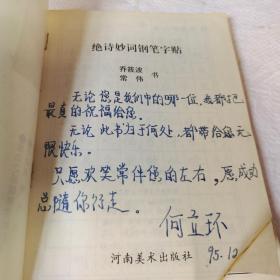 绝诗妙词钢笔字贴
乔筱波
常伟 书
无论您是我们中的哪一位,我都把
最真的祝福给您。
无论此书归于何处,都带给您无
限快乐。
只愿欢笑常伴您的左右,愿成功
总随你行走。
何立环
河南美术出版社
95.12